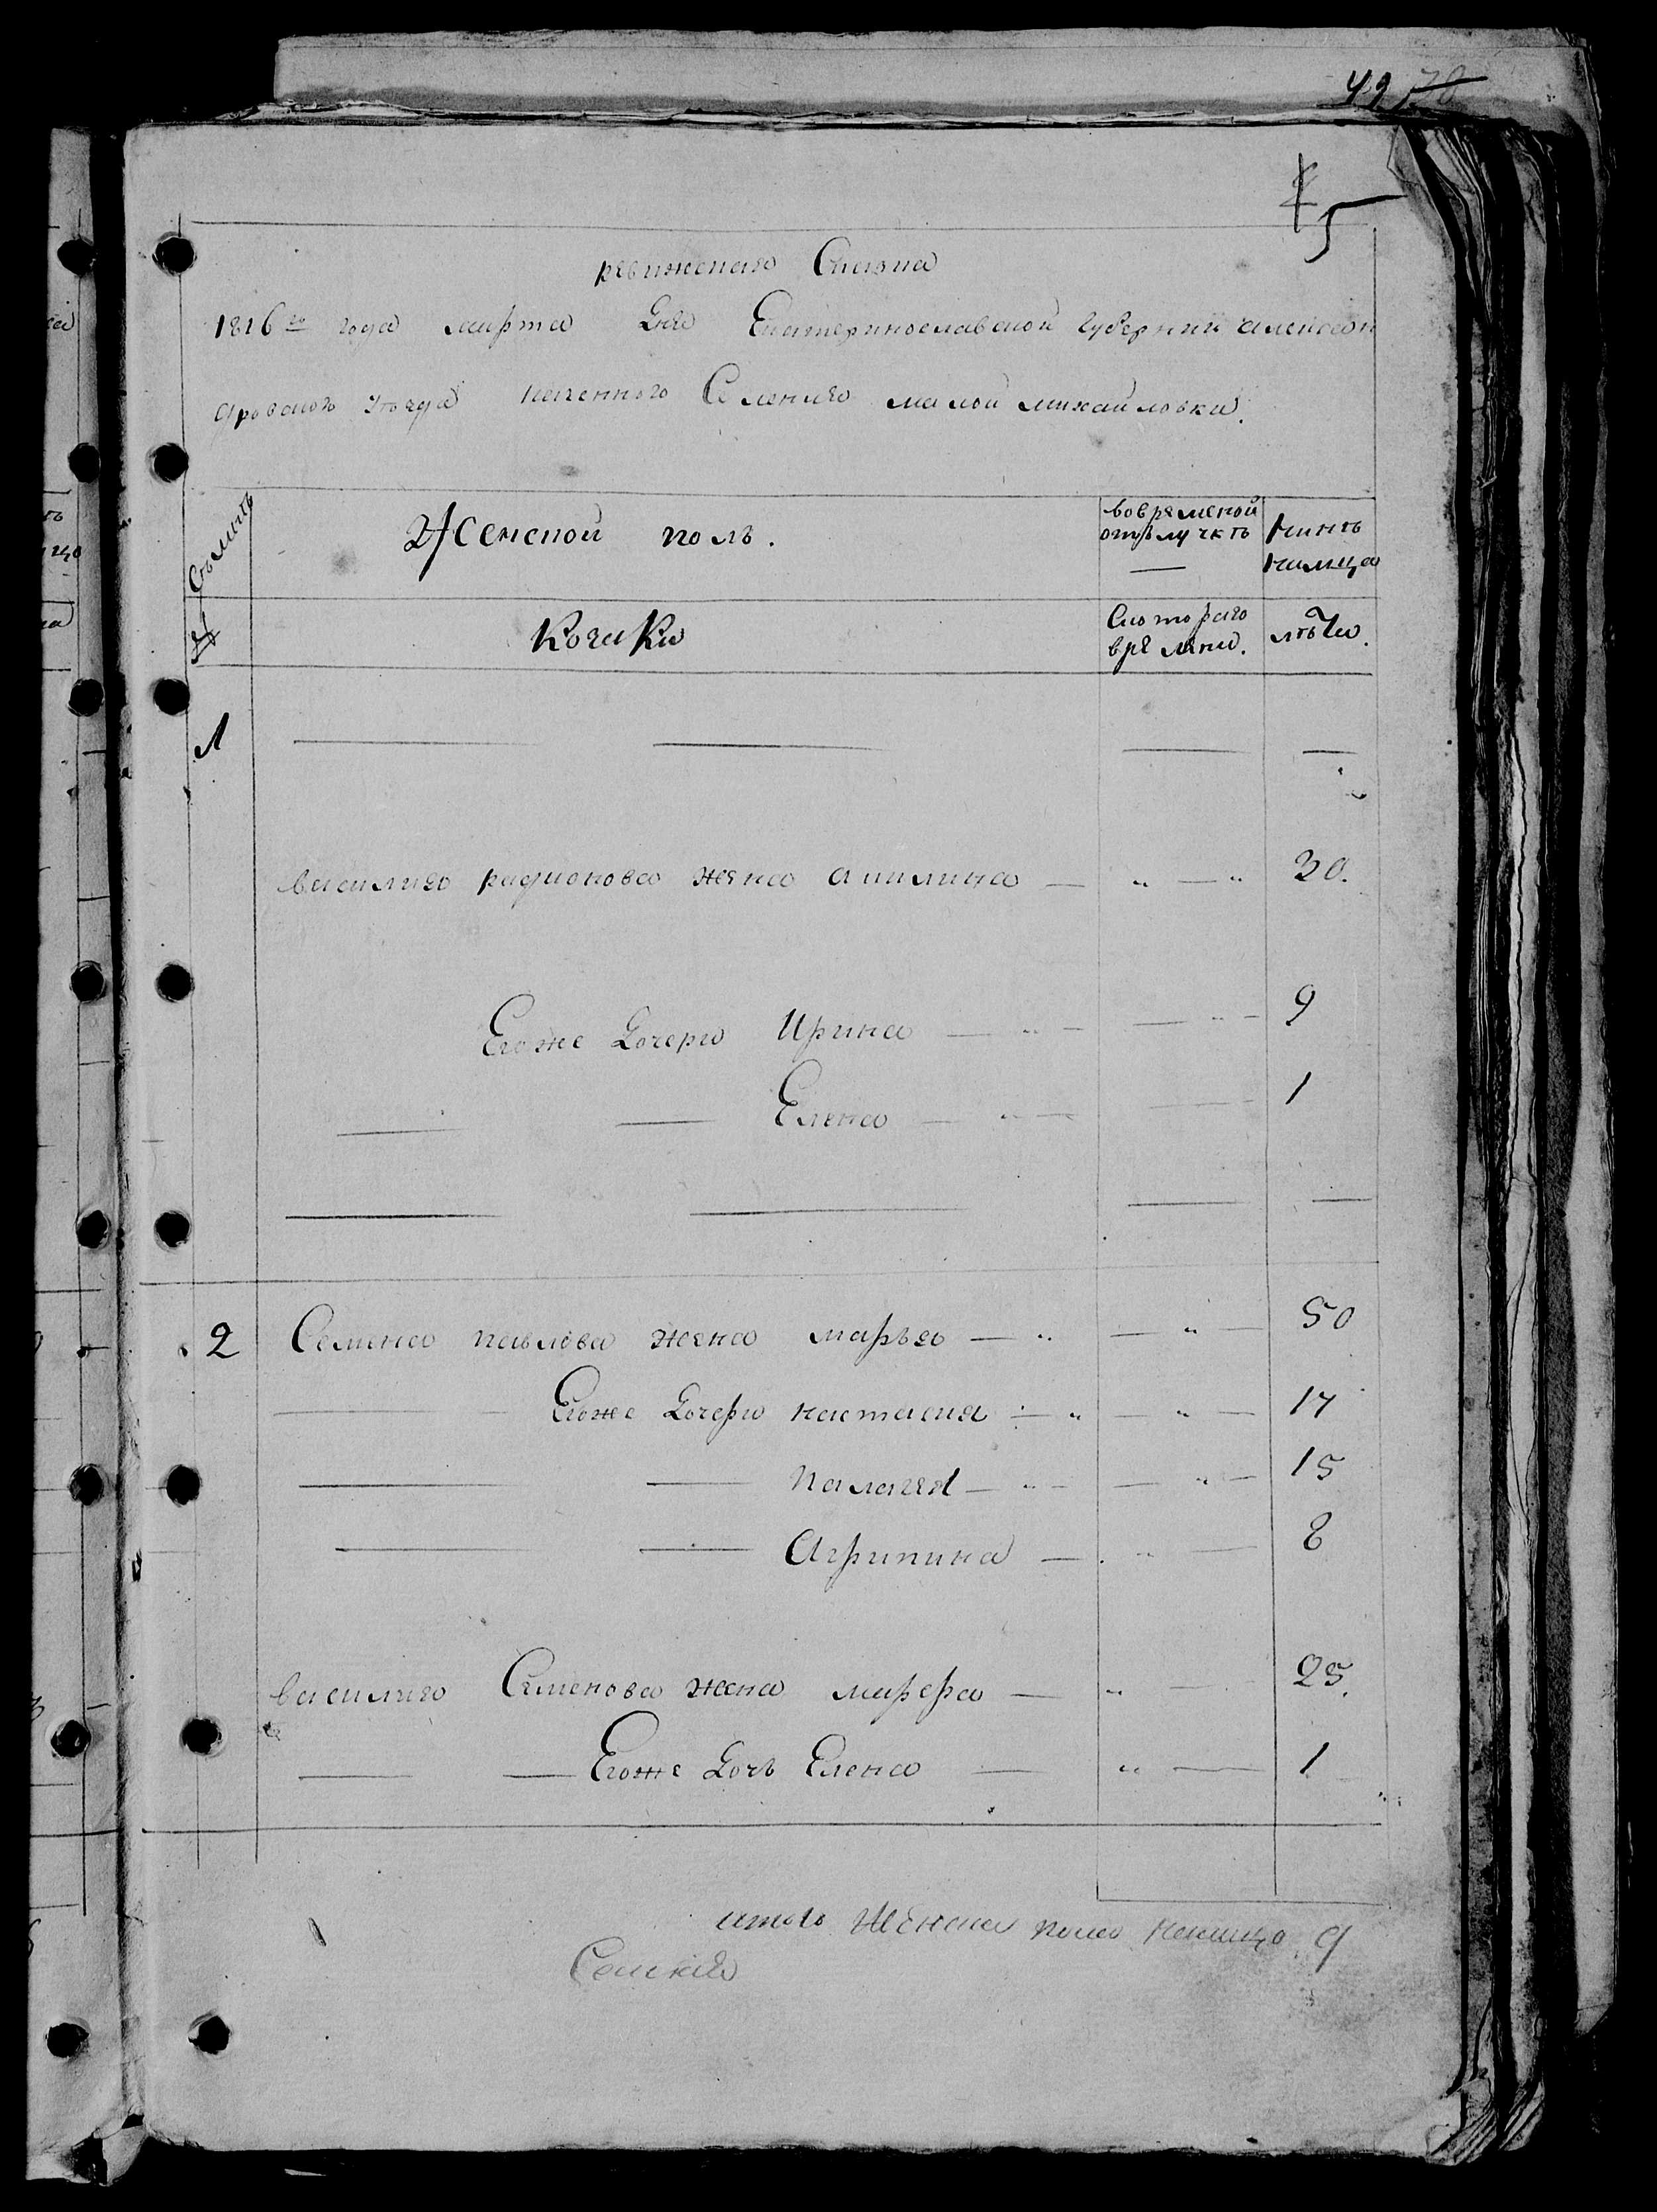 49 70
5
ревижская Сказка
1816го года марта дня Екатеринославской губернии алексан
дровского уезда казенного Селения малой михайловки.
Семьи
Женской полъ.
вовременой
отълучкъ
Нинъ
налицо
№
Казаки
Скотораго
времени.
лѣта.
1
василия радионова жена акилина — 30.
Егоже дочери Ирина — 9
Елена — 1
2 Семена павлова жена марья — 50
Егоже дочери настасия — 17
Палагея — 15
Агрипина — 8
василия Семенова жена марфа — 25.
Егоже дочь Елена — 1
итого Женска пола налицо 9